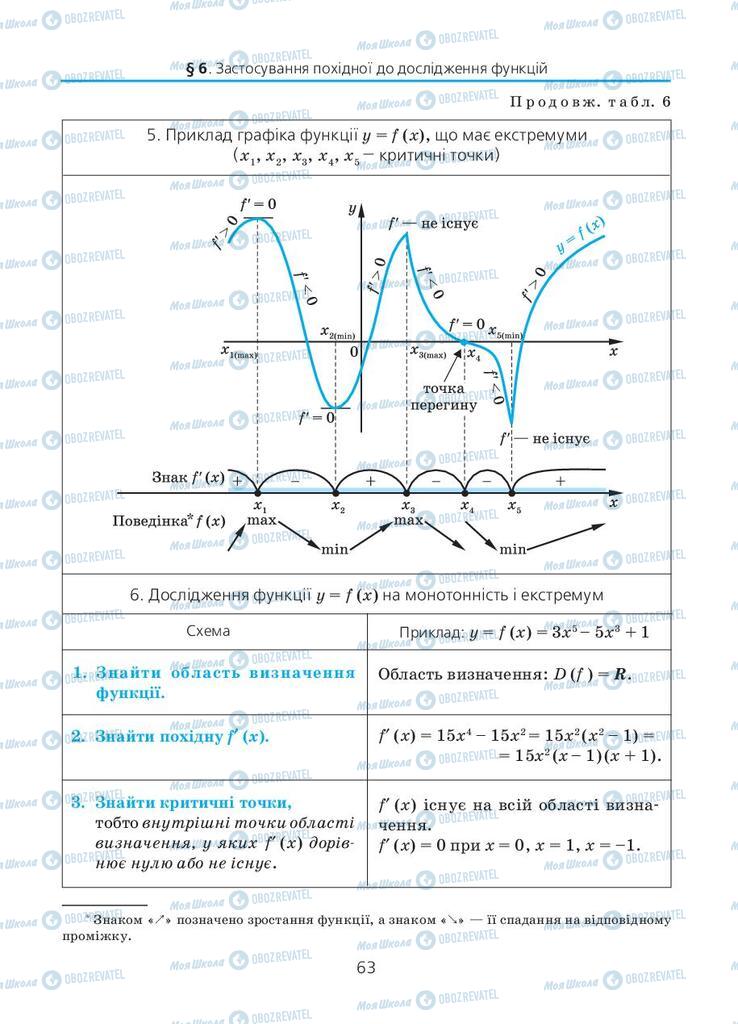 § 6. Застосування похідної до дослідження функцій
Продовж. табл. 6
5. Приклад графіка функції y = f (x), що має екстремуми
(x₁, x₂, x₃, x₄, x₅ — критичні точки)
f′ = 0
y
f′ — не існує
y = f (x)
f′ > 0
f′ < 0
f′ > 0
f′ < 0
f′ > 0
x₂(min)
f′ = 0
x₅(min)
x₁(max)
0
x₃(max)
x₄
x
f′ < 0
точка
перегину
f′ = 0
f′ — не існує
Знак f′ (x)
+ − + − − +
x₁ x₂ x₃ x₄ x₅ x
Поведінка* f (x)
max max
min min
6. Дослідження функції y = f (x) на монотонність і екстремум
Схема
Приклад: y = f (x) = 3x⁵ – 5x³ + 1
1. Знайти область визначення
функції.
Область визначення: D (f ) = R.
2. Знайти похідну f′ (x).
f′ (x) = 15x⁴ – 15x² = 15x² (x² – 1) =
= 15x² (x – 1) (x + 1).
3. Знайти критичні точки,
тобто внутрішні точки області
визначення, у яких f′ (x) дорів-
нює нулю або не існує.
f′ (x) існує на всій області визна-
чення.
f′ (x) = 0 при x = 0, x = 1, x = –1.
* Знаком «↗» позначено зростання функції, а знаком «↘» — її спадання на відповідному
проміжку.
63
МояШкола OBOZREVATEL